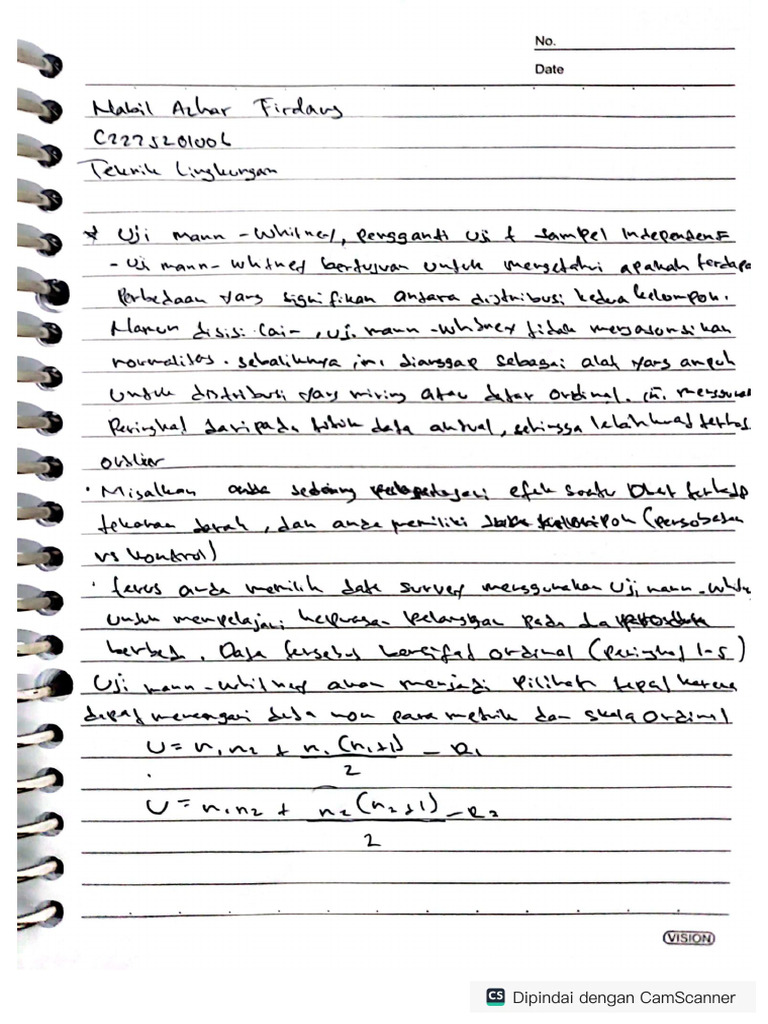 No.
Date
Nabil Azhar Firdaus
C2275201006
Teknik Lingkungan
* Uji mann-Whitney, pengganti uji t sampel Independent
- uji mann-whitney bertujuan untuk mengetahui apakah terdapa
Perbedaan yang signifikan antara distribusi kedua kelompok.
Namun disisi lain, uji mann-whitney tidak mengasumsikan
normalitas. sebaliknya ini dianggap sebagai alat yang ampuh
untuk distribusi yang miring atau data ordinal. ini menggunak
Peringkat daripada titik data aktual, sehingga lebih kuat terhad
outlier
• Misalkan anda sedang mempelajari efek suatu obat terhadap
tekanan darah, dan anda memiliki kelompok (pengobatan
vs kontrol)
• terus anda memilik data survey menggunakan Uji mann-whitn
untuk mempelajari kepuasan pelanggan pada dua
berbeda. Data tersebut bersifat ordinal (peringkat 1-5)
Uji mann-whitney akan menjadi pilihan tepat karena
dapat menangani data non parametrik dan skala ordinal
U = n1n2 + n1(n1+1) - R1
2
U = n1n2 + n2(n2+1) - R2
2
VISION
CS Dipindai dengan CamScanner